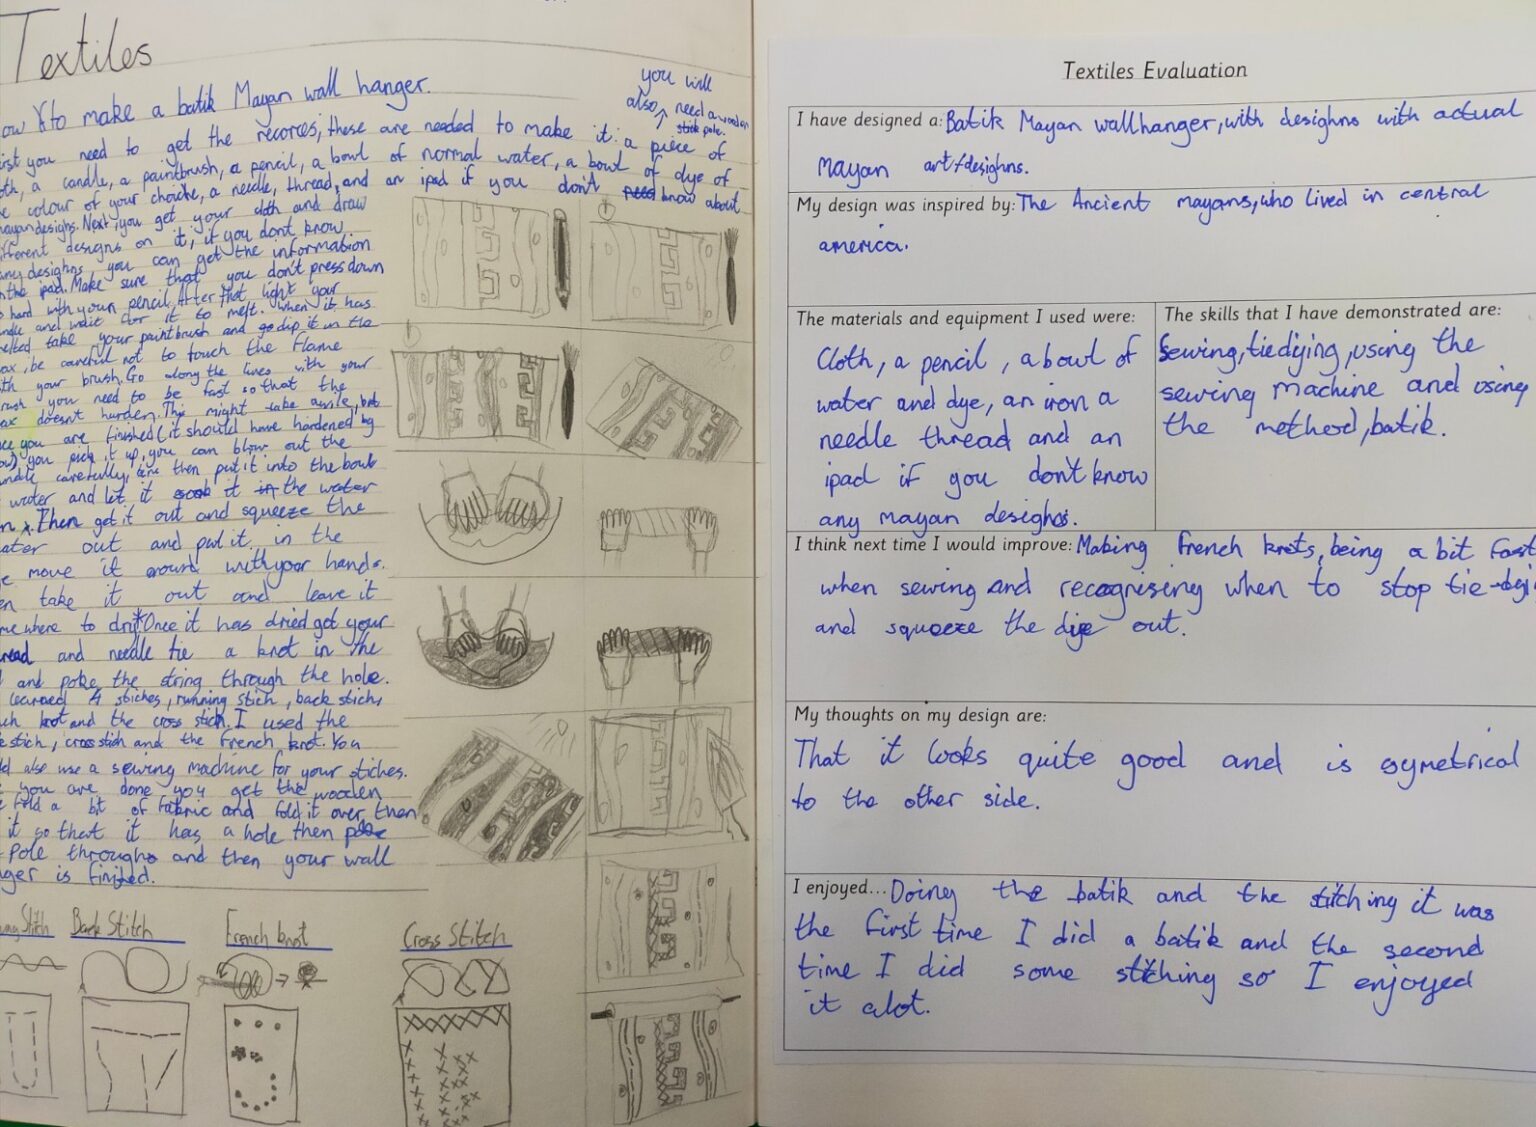 Textiles
ow to make a batik Mayan wall hanger.
you will
also need a wooden
pole.
irst you need to get the recorces, these are needed to make it: a piece of
oth, a candle, a paintbrush, a pencil, a bowl of normal water, a bowl of dye of
e colour of your choiche, a needle, thread, and an ipad if you don't know about
mayan desighs. Next, you get your cloth and draw
ifferent designs on it, if you dont know
any desighns, you can get the information
n the ipad. Make sure that you don't press down
o hard with your pencil. After that light your
ndle and wait for it to melt. when it has
elted take your paintbrush and dip it in the
ax, be careful not to touch the flame
ith your brush. Go along the lines with your
rush you need to be fast so that the
ax doesn't harden. This might take awile, but
ce you are finished (it should have hardened by
ow) you pick it up, you can blow out the
andle carefully, then put it into the bowl
water and let it soak it the water
n. Then get it out and squeeze the
ater out and put it in the
e move it around with your hands.
en take it out and leave it
me where to dry. Once it has dried get your
read and needle tie a knot in the
and poke the string through the hole.
learned 4 stiches, running stich, back stich,
ch knot and the cross stich. I used the
stich, cross stich and the French knot. You
ld also use a sewing machine for your stiches.
you are done you get the wooden
fold a bit of fabric and fold it over then
it so that it has a hole then
pole through and then your wall
nger is finished.
ing Stitch Back Stitch French knot Cross Stitch
Textiles Evaluation
I have designed a: Batik Mayan wallhanger, with desighns with actual
Mayan art/desighns.
My design was inspired by: The Ancient mayans, who lived in central
america.
The materials and equipment I used were:
Cloth, a pencil, a bowl of
water and dye, an iron a
needle thread and an
ipad if you don't know
any mayan desighns.
The skills that I have demonstrated are:
Sewing, tiedying, using the
sewing machine and using
the method, batik.
I think next time I would improve: Making french knots, being a bit fast
when sewing and recognising when to stop tie-dyi
and squeeze the dye out.
My thoughts on my design are:
That it looks quite good and is symetrical
to the other side.
I enjoyed... Doing the batik and the stitching it was
the first time I did a batik and the second
time I did some stitching so I enjoyed
it alot.